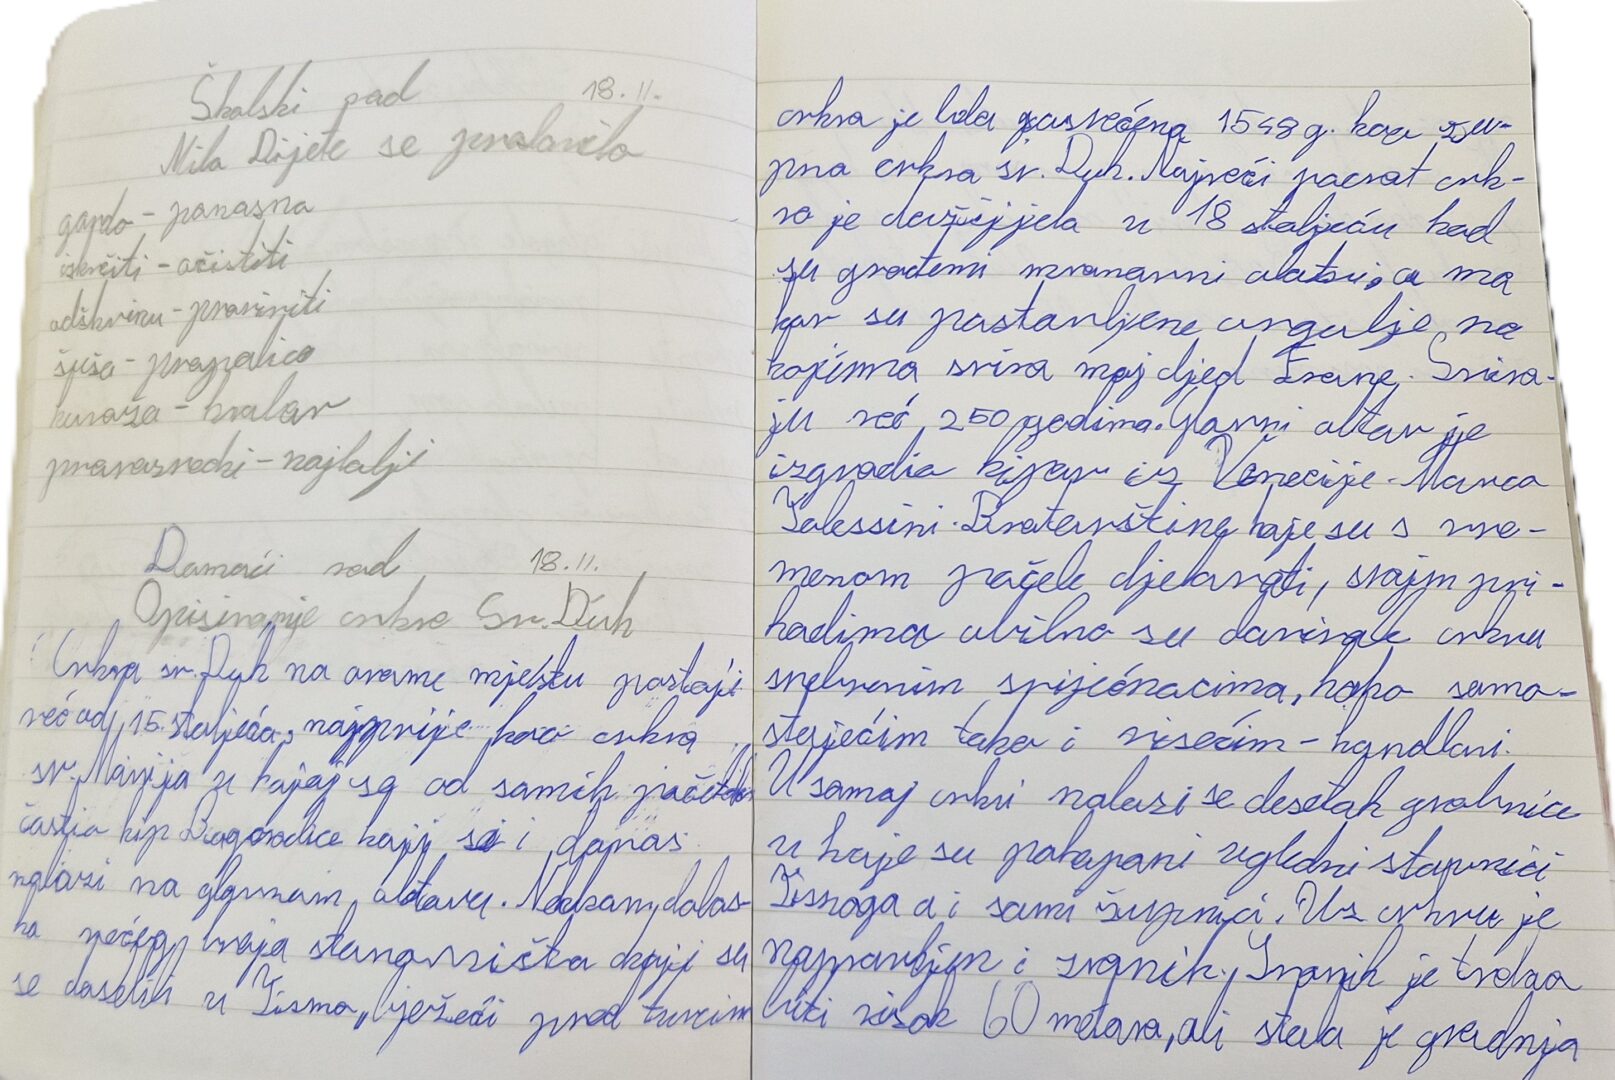 Školski rad 18. II.
Nila Dijete se proslavilo
gordo - ponosno
iskrčiti - očistiti
odškrinu - proviriti
špiša - propalica
kuraža - hrabar
pravasredni - najbolji
Domaći rad 18. II.
Opisivanje crkve Sv. Duh
Crkva sv. Duh na ovome mjestu postoji
već od 15. stoljeća, najprije kao crkva
sv. Marija u kojoj se od samih početaka
častio kip Bogorodice koji se i danas
nalazi na glavnom oltaru. Nakon dolas-
ka većeg broja stanovništva koji su
se doselili u Tisno, bježeći pred turcim
crkva je bila posvećena 1548 g. kao žu-
pna crkva sv. Duh. Najveći procvat crk-
va je doživjela u 18 stoljeću kad
su građeni mramorni oltari, a na
kor su postavljene orgulje na
kojima svira moj djed Frane. Svira-
ju već 250 godina. Glavni oltar je
izgradio kipar iz Venecije - Marco
Talessini. Bratovštine koje su s vre-
menom počele djelovati, svojim pri-
hodima obilno su darivale crkvu
srebrenim svijećnacima, kako samo-
stojećim tako i visećim - kandlari.
U samoj crkvi nalazi se desetak grobnica
u koje su pokopani ugledni stanovnici
Tisnoga a i sami župnici. Uz crkvu je
napravljen i zvonik. Zvonik je trebao
biti visok 60 metara, ali stala je gradnja